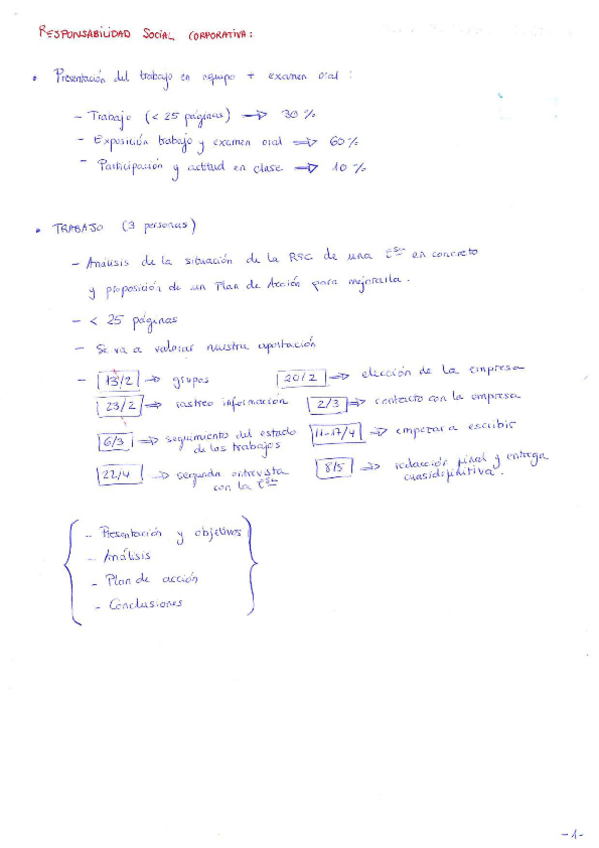 RESPONSABILIDAD SOCIAL CORPORATIVA:
• Presentación del trabajo en equipo + examen oral:
- Trabajo (< 25 páginas) → 30 %
- Exposición trabajo y examen oral → 60 %
- Participación y actitud en clase → 10 %
• TRABAJO (3 personas)
- Análisis de la situación de la RSC de una en concreto
y proposición de un Plan de Acción para mejorarla.
- < 25 páginas
- Se va a valorar nuestra aportación
- 13/2 → grupos 20/2 → elección de la empresa
23/2 → rastreo información 2/3 → contacto con la empresa
6/3 → seguimiento del estado de los trabajos 11-17/4 → empezar a escribir
22/4 → segunda entrevista con la 8/5 → redacción final y entrega cuasidefinitiva.
- Presentación y objetivos
- Análisis
- Plan de acción
- Conclusiones
-1-